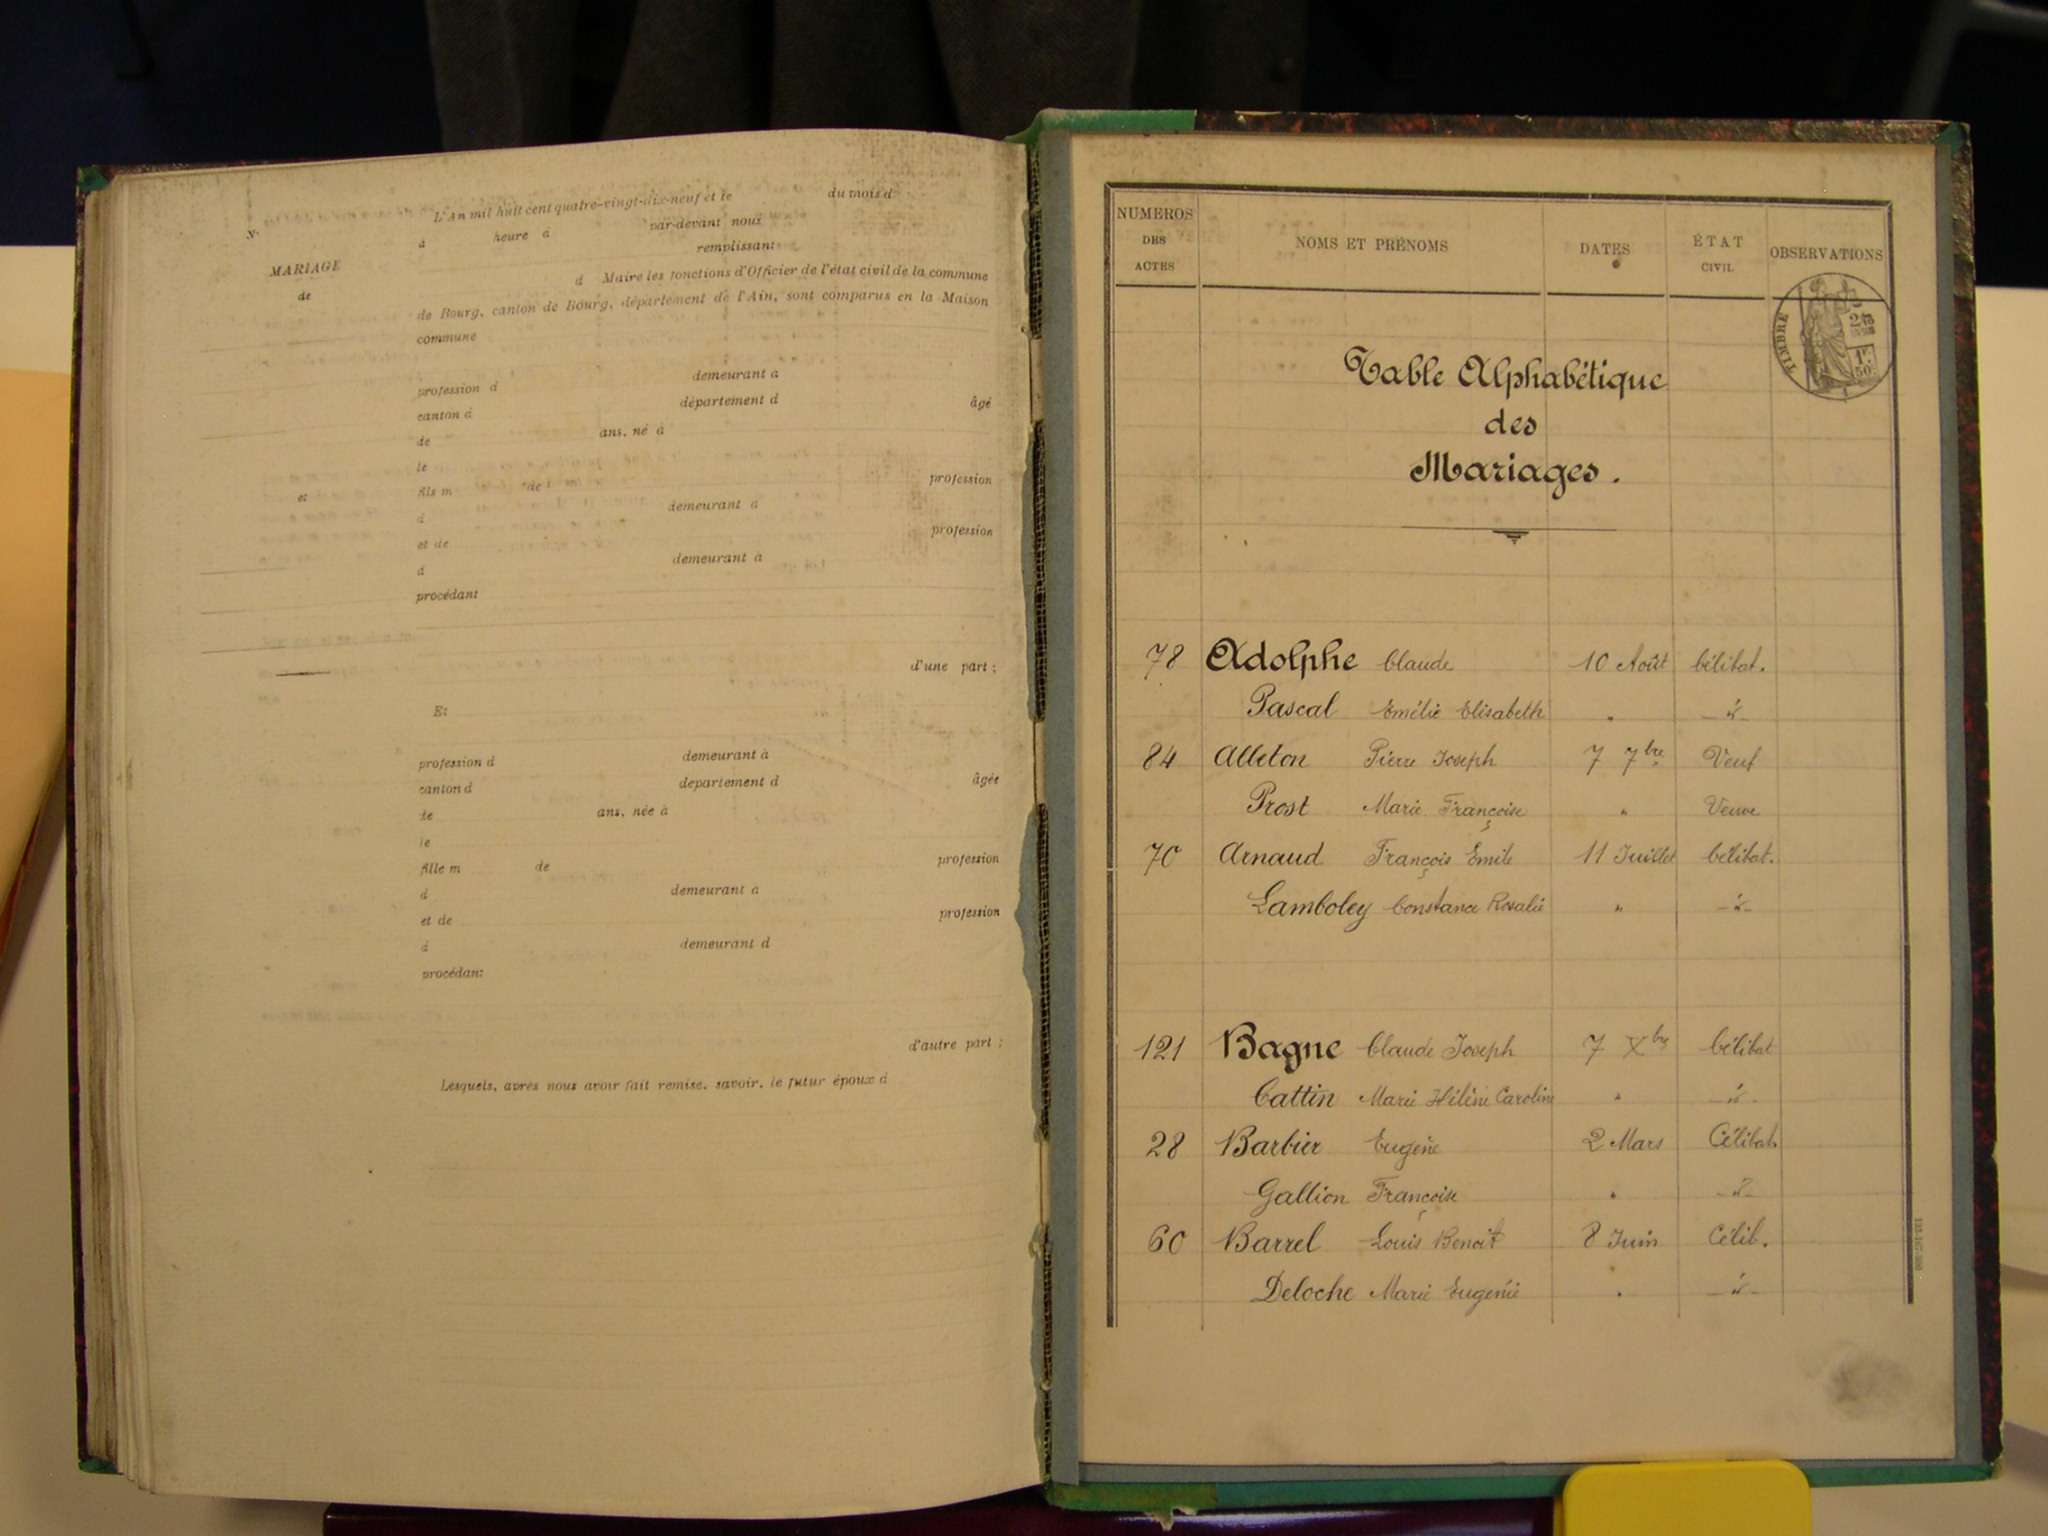 N.
MARIAGE
de
et
L'An mil huit cent quatre-vingt-dix-neuf et le du mois d
à heure à par-devant nous
remplissant
d Maire les fonctions d'Officier de l'état civil de la commune
de Bourg, canton de Bourg, département de l'Ain, sont comparus en la Maison
commune
profession d demeurant à
canton d département d âgé
de ans, né à
le
fils m de profession
d demeurant à
et de profession
d demeurant à
procédant
d'une part ;
Et
profession d demeurant à
canton d département d âgée
de ans, née à
le
fille m de profession
d demeurant à
et de profession
d demeurant d
procédant
d'autre part ;
Lesquels, après nous avoir fait remise, savoir, le futur époux d
NUMEROS DES ACTES NOMS ET PRÉNOMS DATES ÉTAT CIVIL OBSERVATIONS
TIMBRE
Table Alphabétique
des
Mariages.
78 Adolphe Claude 10 Août Célibat.
Pascal Emélie Elisabeth " - d° -
84 Alleton Pierre Joseph 7 7bre Veuf
Prost Marie Françoise " Veuve
70 Arnaud François Emile 11 Juillet Célibat.
Lamboley Constance Rosalie " - d° -
121 Bagne Claude Joseph 7 Xbre Célibat
Cattin Marie Hélène Caroline " - d° -
28 Barbier Eugène 2 Mars Célibat.
Gallion Françoise " - d° -
60 Barrel Louis Benoit 8 Juin Célib.
Deloche Marie Eugénie " - d° -